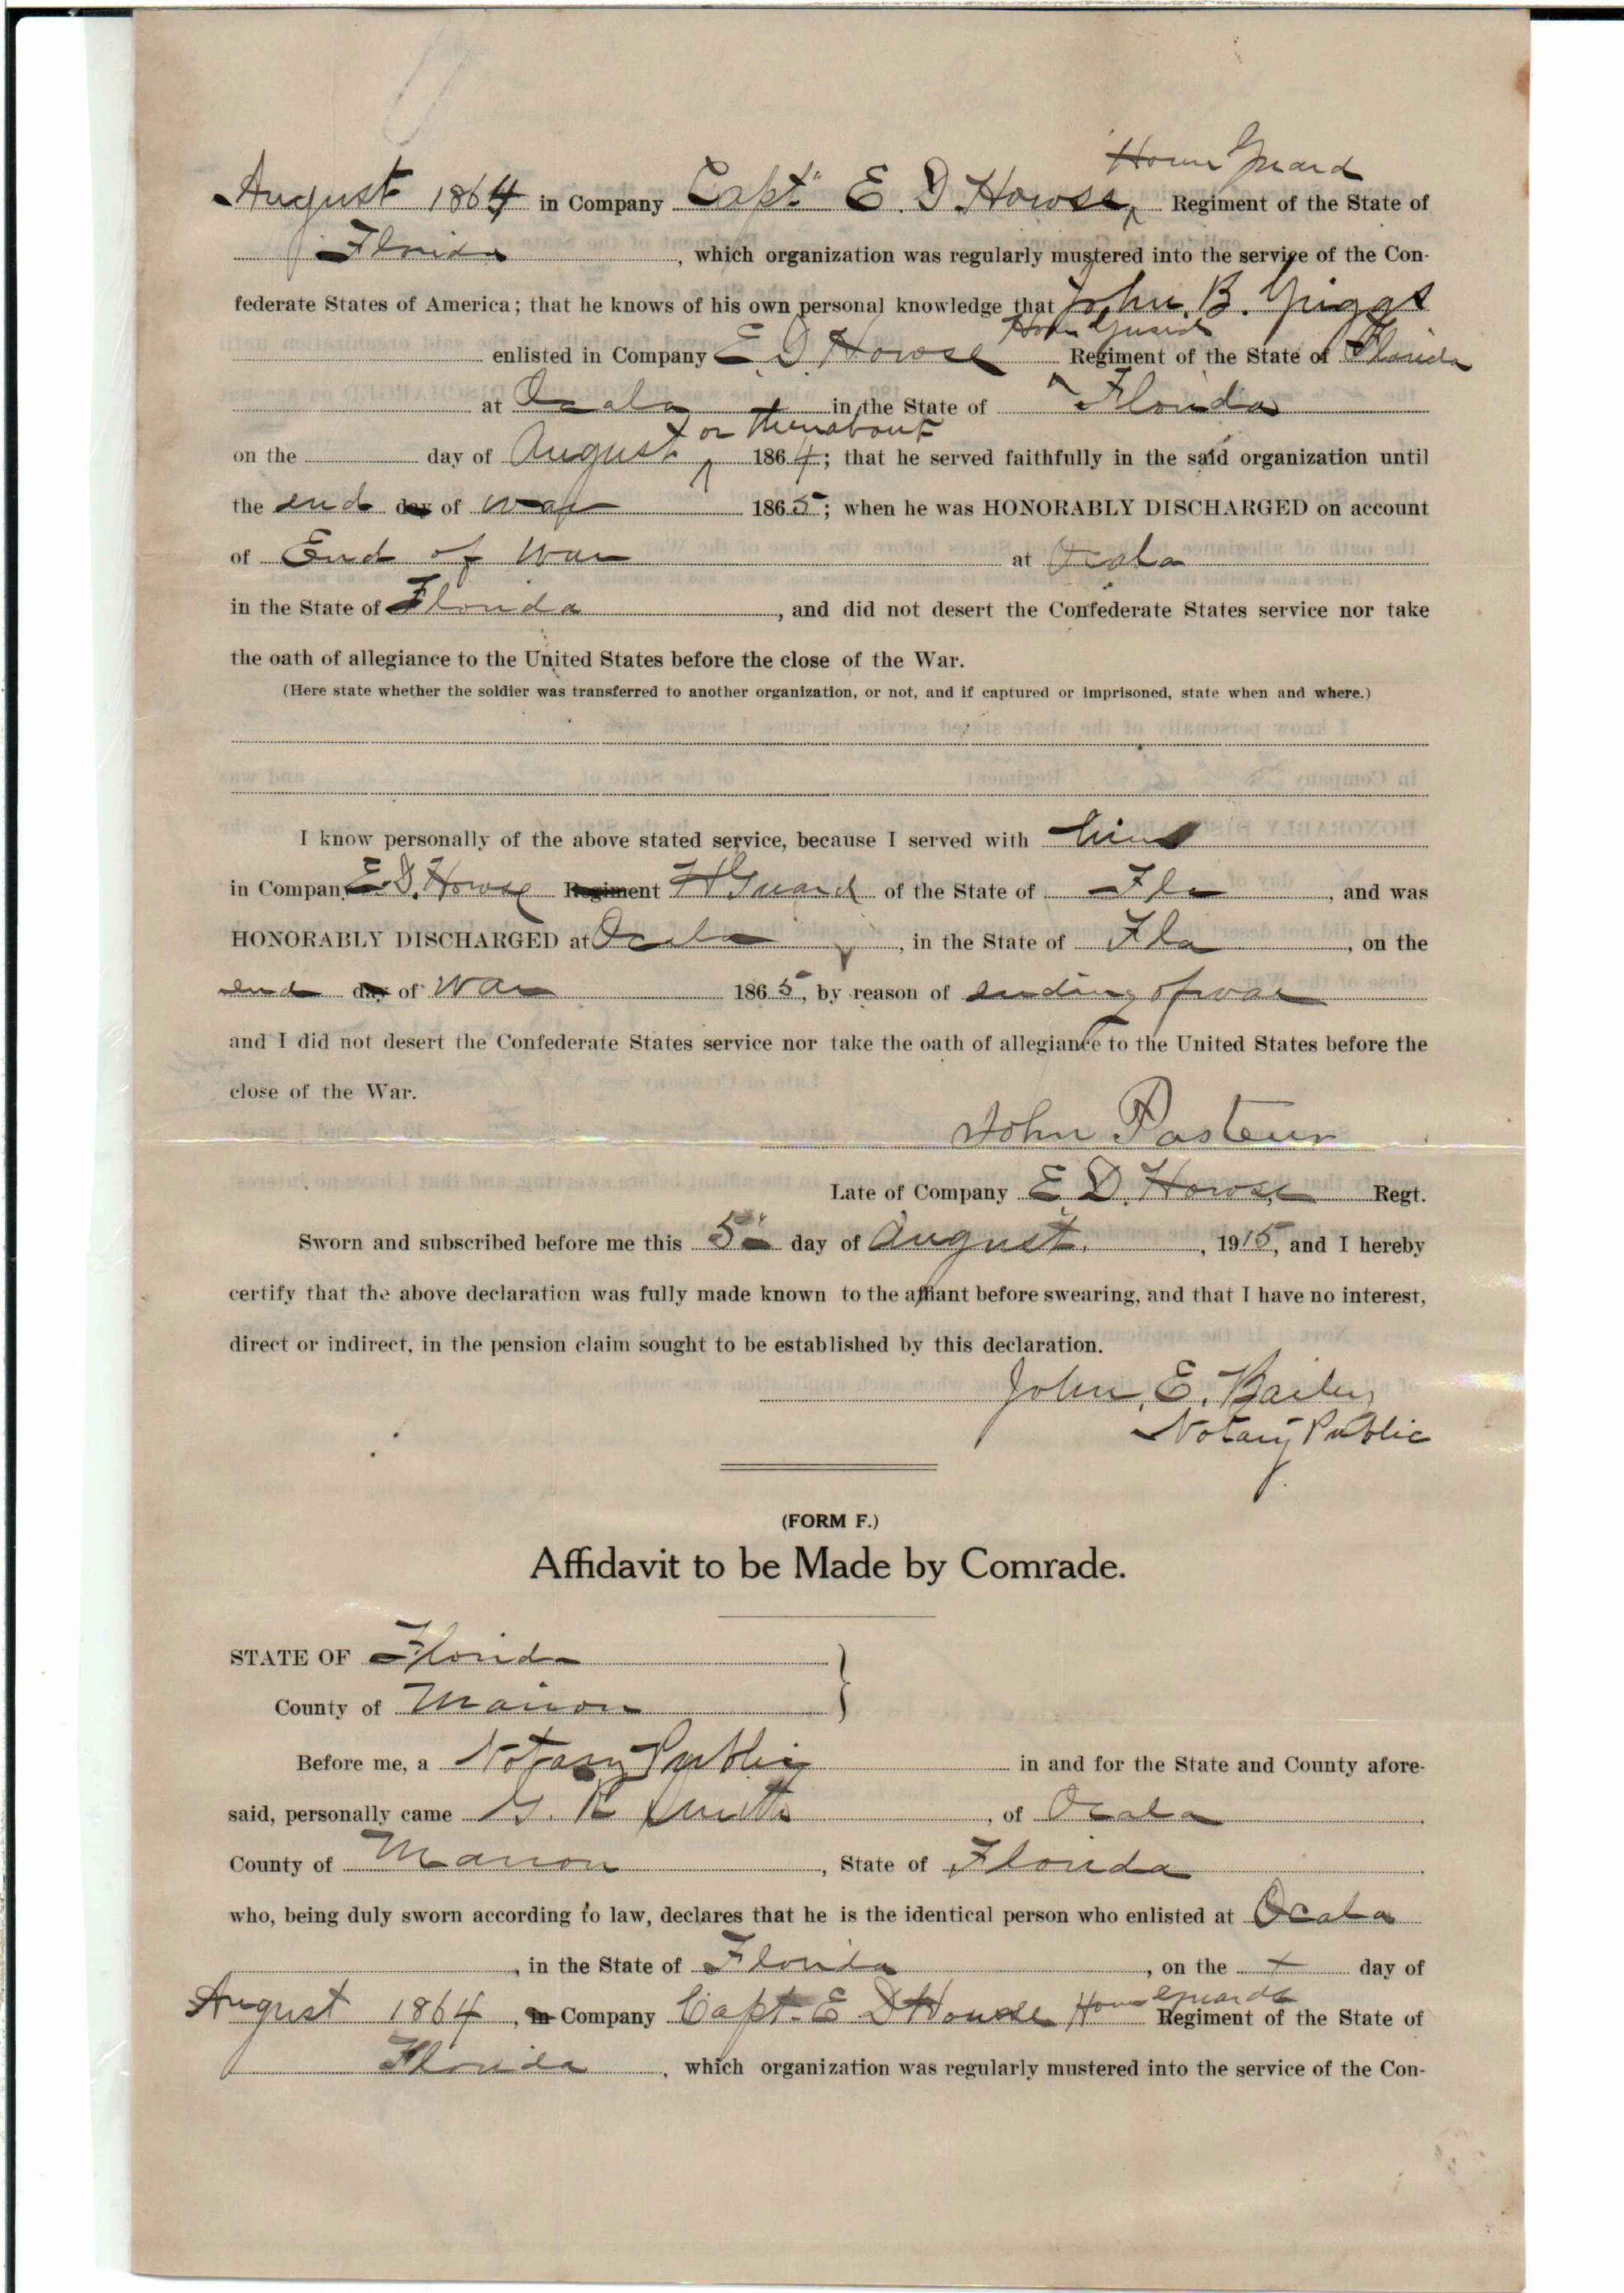 Home Guard
August 1864 in Company Capt. E. D. Howse, Regiment of the State of
Florida, which organization was regularly mustered into the service of the Con-
federate States of America; that he knows of his own personal knowledge that John B. Griggs
Home Guard
enlisted in Company E. D. Howse Regiment of the State of Florida
at Ocala in the State of Florida
or thereabout
on the day of August 1864; that he served faithfully in the said organization until
the end day of war 1865; when he was HONORABLY DISCHARGED on account
of End of War at Ocala
in the State of Florida, and did not desert the Confederate States service nor take
the oath of allegiance to the United States before the close of the War.
(Here state whether the soldier was transferred to another organization, or not, and if captured or imprisoned, state when and where.)
I know personally of the above stated service, because I served with him
in Company E. D. Howse Regiment H Guard of the State of Fla, and was
HONORABLY DISCHARGED at Ocala, in the State of Fla, on the
end day of War 1865, by reason of ending of war
and I did not desert the Confederate States service nor take the oath of allegiance to the United States before the
close of the War.
John Pasteur
Late of Company E. D. Howse Regt.
Sworn and subscribed before me this 5" day of August, 1915, and I hereby
certify that the above declaration was fully made known to the affiant before swearing, and that I have no interest,
direct or indirect, in the pension claim sought to be established by this declaration.
John E. Bailey
Notary Public
(FORM F.)
Affidavit to be Made by Comrade.
STATE OF Florida
County of Marion
Before me, a Notary Public in and for the State and County afore-
said, personally came G. R Smith, of Ocala
County of Marion, State of Florida
who, being duly sworn according to law, declares that he is the identical person who enlisted at Ocala
, in the State of Florida, on the x day of
Home Guards
August 1864, in Company Capt. E D Howse Regiment of the State of
Florida, which organization was regularly mustered into the service of the Con-